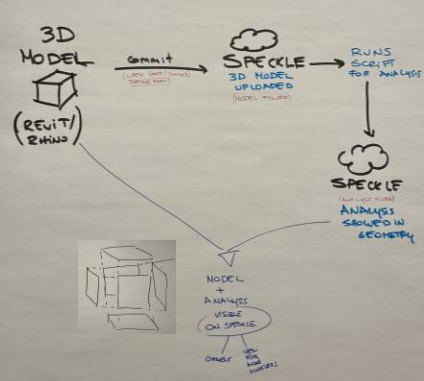 3D
MODEL
(REVIT/
RHINO)
COMMIT
SPECKLE
3D MODEL
UPLOADED
RUNS
SCRIPT
FOR ANALYSIS
SPECKLE
ANALYSIS
SHOWED IN
GEOMETRY
MODEL
+
ANALYSIS
VISIBLE
ON SPECKLE